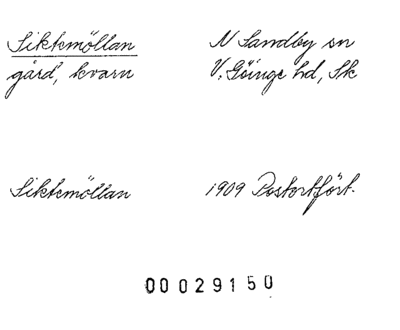 Siktemöllan
gård, kvarn
N Sandby sn
V. Göinge hd, Sk
Siktemöllan
1909 Postortsfört.
00029150